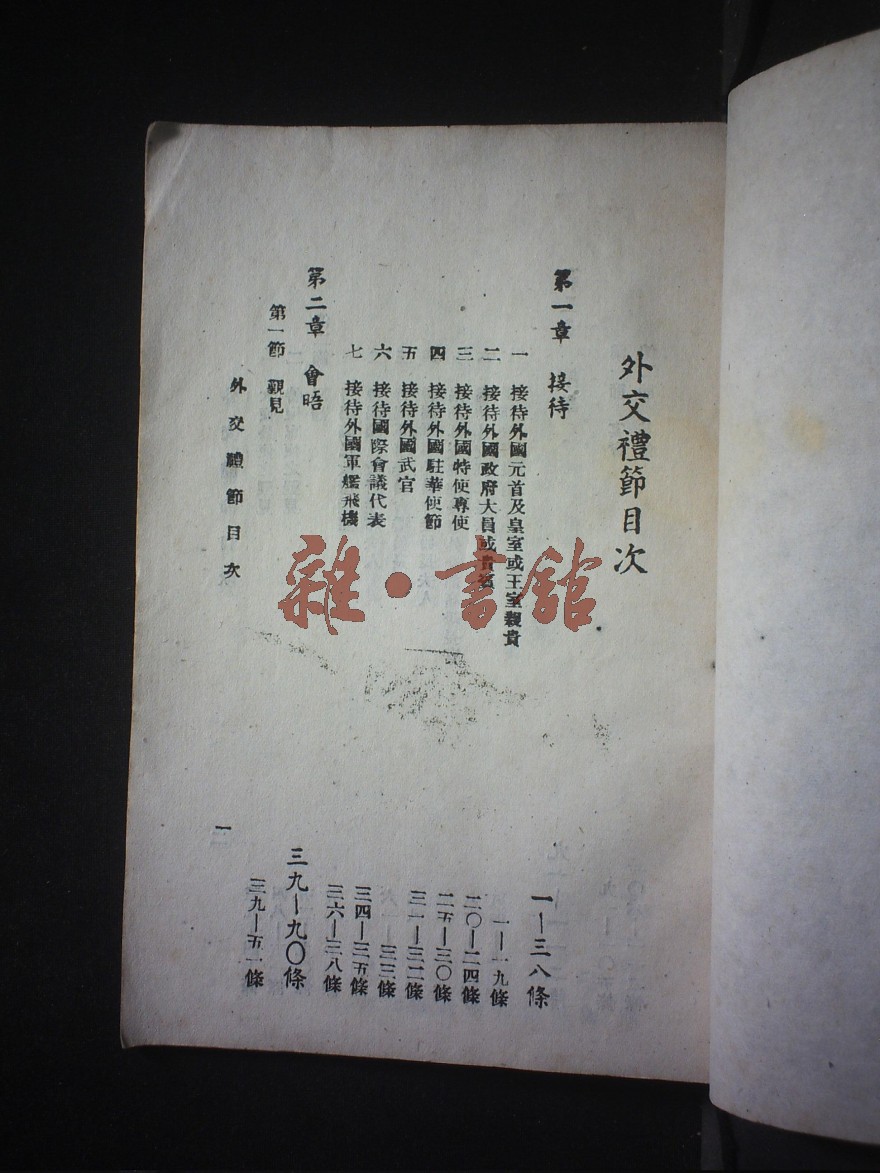 外交禮節目次
第一章 接待 一—三八條
一 接待外國元首及皇室或王室親貴 一—一九條
二 接待外國政府大員或貴賓 二〇—二四條
三 接待外國特使專使 二五—三〇條
四 接待外國駐華使節 三一—三二條
五 接待外國武官 三三條
六 接待國際會議代表 三四—三五條
七 接待外國軍艦飛機 三六—三八條
第二章 會晤 三九—九〇條
第一節 覲見 三九—五一條
外交禮節目次 一
雜·書館